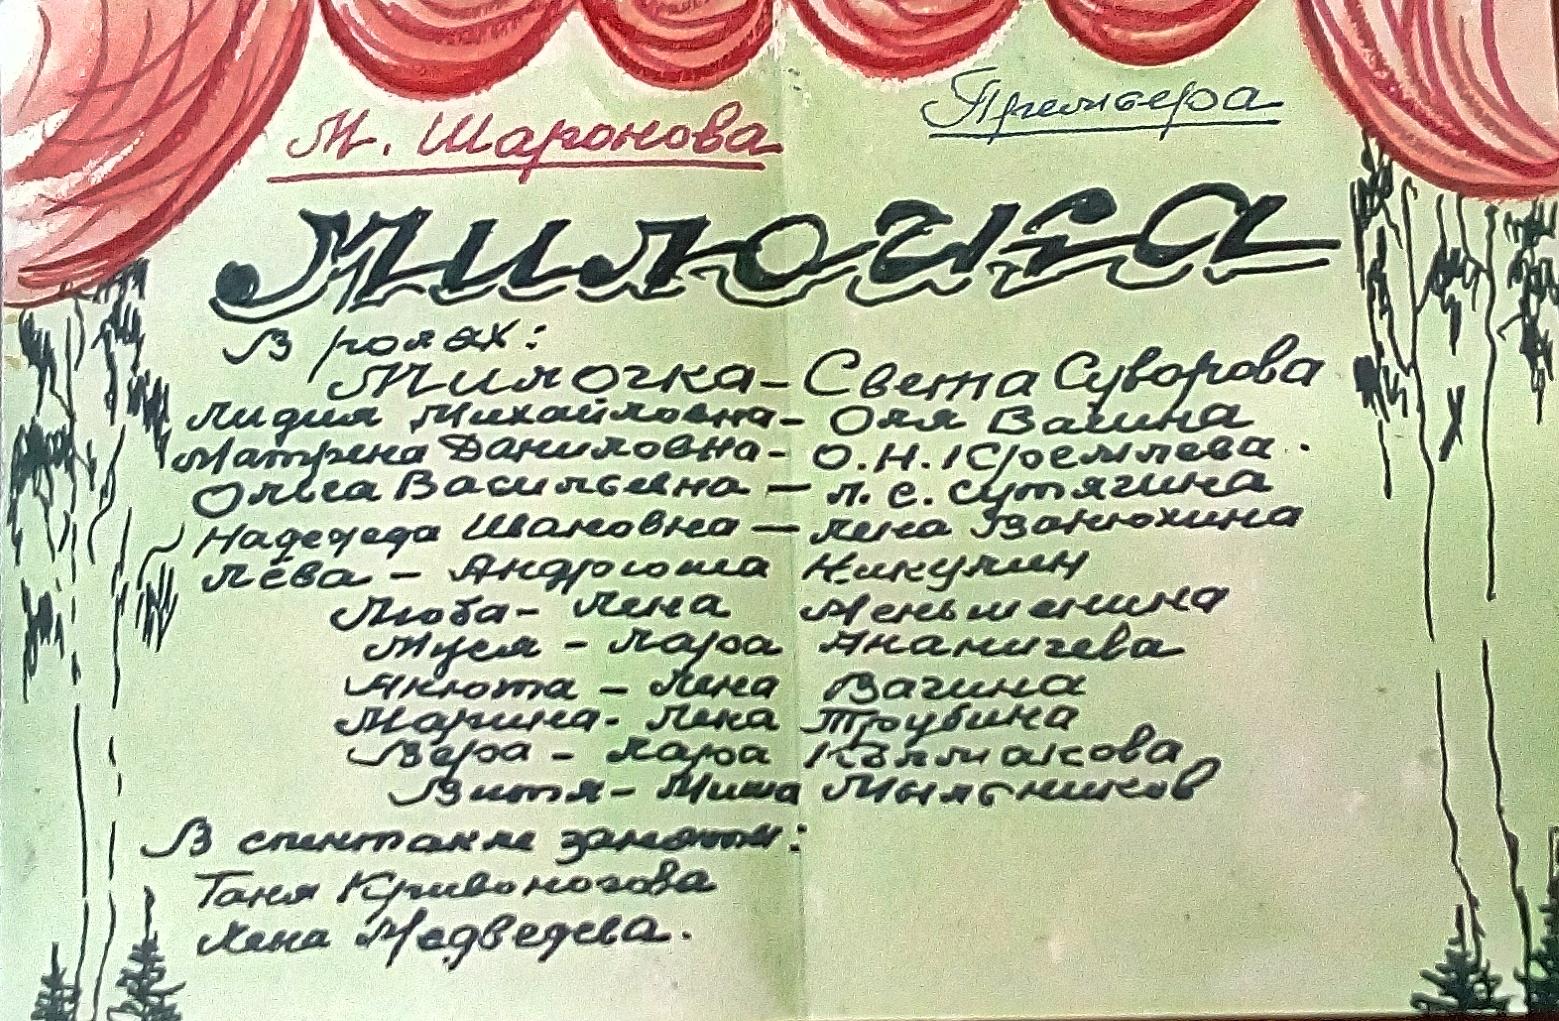 М. Шаронова
Премьера
Милочка
В ролях:
Милочка – Света Суворова
Лидия Михайловна – Оля Вагина
Матрена Даниловна – О. Н. Кремлева.
Ольга Васильевна – Л. С. Сутягина
Надежда Ивановна – Лена Ванюхина
Лёва – Андрюша Никулин
Люба – Лена Меньшенина
Муся – Лара Ананичева
Анюта – Лена Вагина
Марина – Лена Трубина
Вера – Лара Колмакова
Витя – Миша Мыльников
В спектакле заняты:
Таня Кривоногова
Лена Медведева.